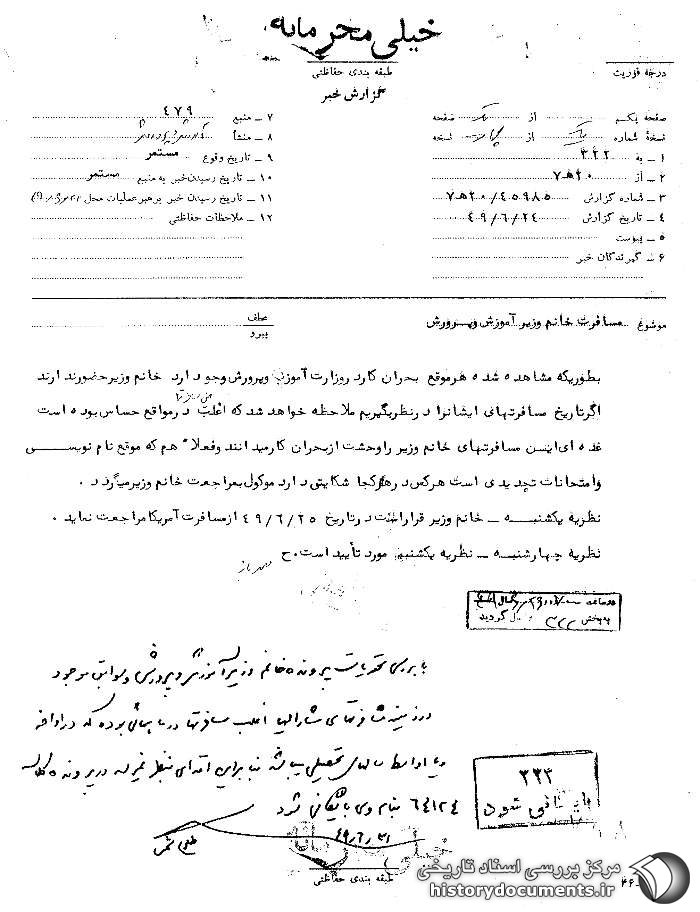 خیلی محرمانه
طبقه بندی حفاظتی
درجهٔ فوریت
گزارش خبر
صفحه یکم از یک صفحه
نسخهٔ شماره یک از نسخه
۱ – به ۳۲۲
۲ – از ۲۰هـ۷
۳ – شماره گزارش ۲۰/۴۵۹۸۵هـ۷
۴ – تاریخ گزارش ۴۹/۶/۲۴
۵ – پیوست
۶ – گیرندگان خبر
۷ – منبع ۴۷۹
۸ – منشأ
۹ – تاریخ وقوع مستمر
۱۰ – تاریخ رسیدن خبر به منبع مستمر
۱۱ – تاریخ رسیدن خبر به رهبر عملیات محل
۱۲ – ملاحظات حفاظتی
موضوع مسافرت خانم وزیر آموزش و پرورش
عطف
پیرو
بطوریکه مشاهده شده هر موقع بحران کار در وزارت آموزش و پرورش وجود دارد خانم وزیر حضور ندارند
اگر تاریخ مسافرتهای ایشانرا در نظر بگیریم ملاحظه خواهد شد که اغلب در مواقع حساس بوده است
عده ای این مسافرتهای خانم وزیر را وحشت از بحران کار میدانند و فعلا" هم که موقع نام نویسی
و امتحانات تجدیدی است هر کس در هر کجا شکایتی دارد موکول بمراجعت خانم وزیر میگردد .
نظریه یکشنبه – خانم وزیر قرار است در تاریخ ۴۹/۶/۲۵ از مسافرت آمریکا مراجعت نماید .
نظریه چهارشنبه – نظریه یکشنبه مورد تأیید است . ح
با بررسی محتویات پرونده خانم وزیر آموزش و پرورش و سوابق موجود
در زمینه مسافرتهای مشارالیها اغلب مسافرتها در زمانهائی بوده که در اواخر
و یا اواسط سالهای تحصیلی میباشد بنابراین اقدامی بنظر نمیرسد در پرونده کلاسه
۶۴۱۲۴ بنام وی بایگانی شود
۴۹/۶/۳۱
۳۲۲
بایگانی شود
خیلی محرمانه
طبقه بندی حفاظتی
مرکز بررسی اسناد تاریخی
historydocuments.ir